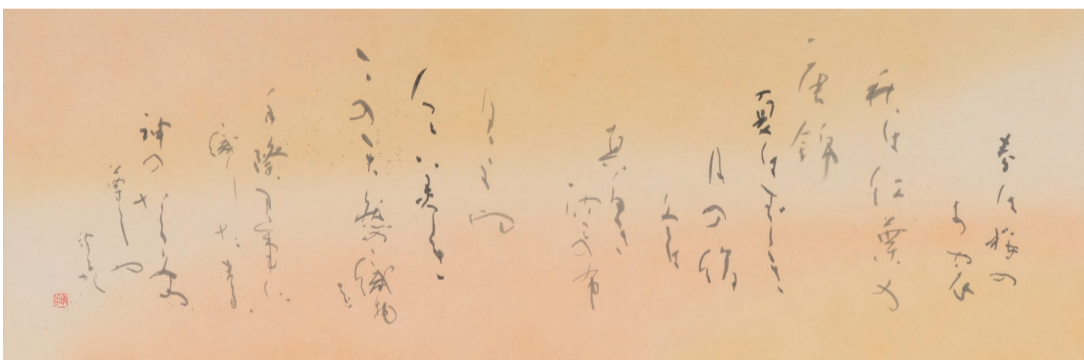 春は桜の
あや衣
秋は紅葉の
唐錦
夏は涼しき
月の絹
冬は
真白き
雪の布
見よや
人々美しき
この天然の織物を
手際見事に
神のたくみの
尊しや